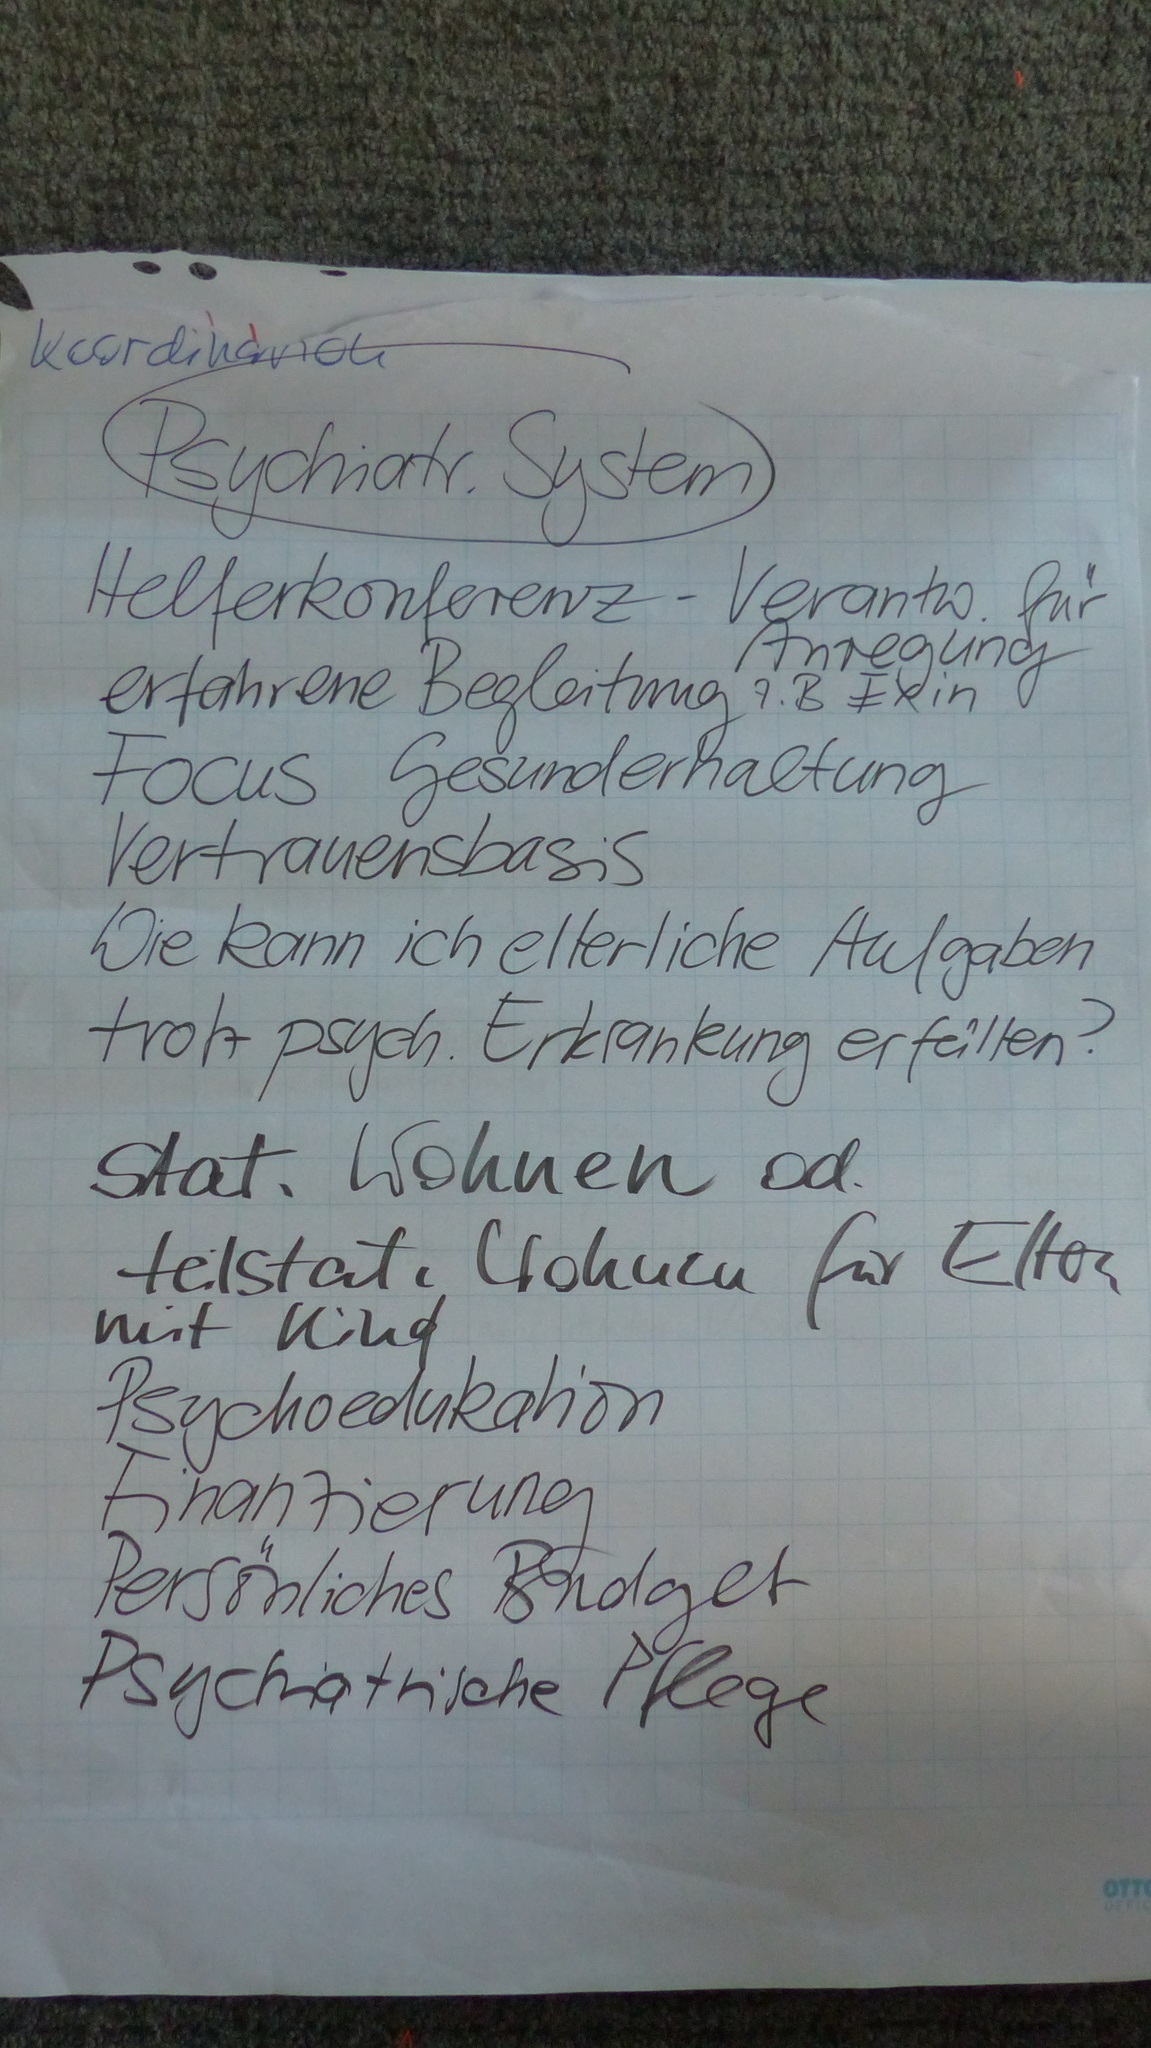 Koordination
Psychiatr. System
Helferkonferenz - Verantw. für
Anregung
erfahrene Begleitung z.B Exin
Focus Gesunderhaltung
Vertrauensbasis
Wie kann ich elterliche Aufgaben
trotz psych. Erkrankung erfüllen?
Stat. Wohnen od.
teilstat. Wohnen für Eltern
mit Kind
Psychoedukation
Finanzierung
Persönliches Budget
Psychiatrische Pflege